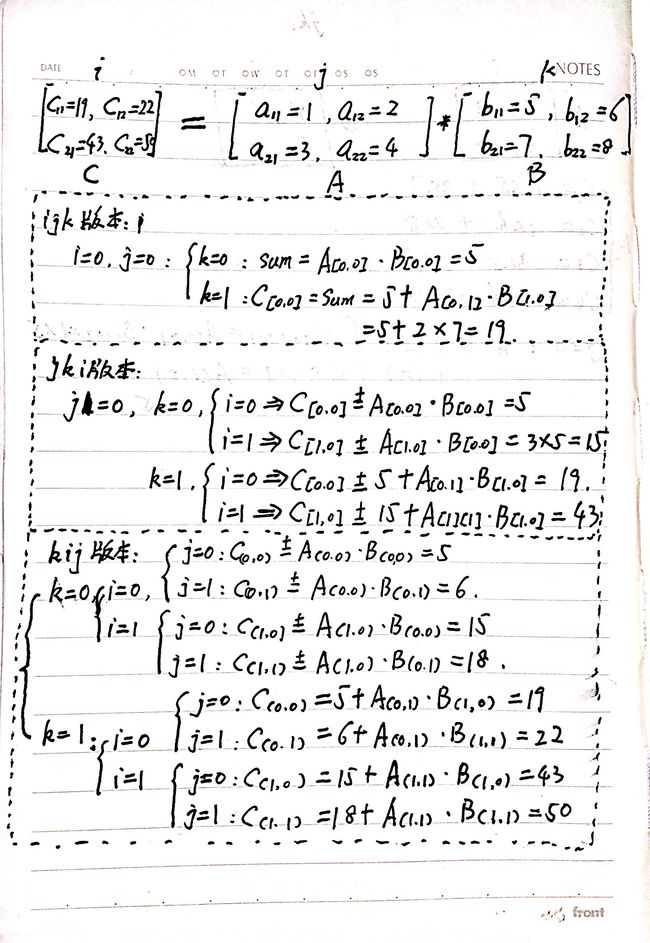 DATE i OM OT OW OT OF OS OS j k NOTES
[C₁₁=19, C₁₂=22 = [a₁₁=1, a₁₂=2 ] * [b₁₁=5, b₁₂=6
C₂₁=43. C₂₂=50] [a₂₁=3, a₂₂=4 ] [b₂₁=7. b₂₂=8]
C A B
ijk版本: i
i=0, j=0: { k=0: sum = A[0.0] · B[0.0] = 5
k=1: C[0.0] = Sum = 5 + A[0,1] · B[1.0]
= 5+2×7 = 19.
jki版本:
j=0, k=0, { i=0 ⇒ C[0.0] ± A[0.0] · B[0.0] = 5
i=1 ⇒ C[1.0] ± A[1.0] · B[0.0] = 3×5 = 15
k=1, { i=0 ⇒ C[0.0] ± 5 + A[0.1] · B[1.0] = 19.
i=1 ⇒ C[1,0] ± 15 + A[1][1] · B[1.0] = 43
kij版本: { j=0: C(0,0) ± A(0.0) · B(0,0) = 5
k=0, { i=0, j=1: C(0,1) ± A(0.0) · B(0.1) = 6.
i=1 { j=0: C(1.0) ± A(1.0) · B(0.0) = 15
j=1: C(1.1) ± A(1.0) · B(0.1) = 18.
{ j=0: C(0.0) = 5 + A(0,1) · B(1,0) = 19
k=1: { i=0 j=1: C(0.1) = 6 + A(0,1) · B(1,1) = 22
i=1 { j=0: C(1,0) = 15 + A(1.1) · B(1,0) = 43
j=1: C(1.1) = 18 + A(1.1) · B(1,1) = 50
front